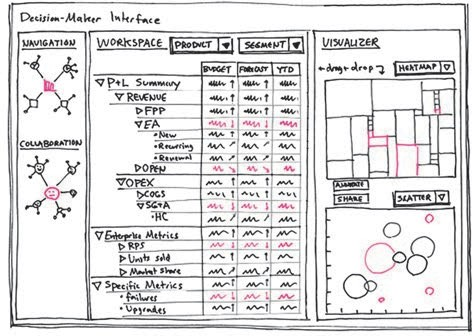 Decision-Maker Interface
NAVIGATION
COLLABORATION
WORKSPACE PRODUCT SEGMENT
BUDGET FORECAST YTD
P+L Summary
REVENUE
FPP
EA
• New
• Recurring
• Renewal
OPEN
OPEX
COGS
SG+A
• HC
Enterprise Metrics
RPS
Units sold
Market share
Specific Metrics
• failures
• Upgrades
VISUALIZER
drag + drop HEATMAP
ANNOTATE
SHARE SCATTER